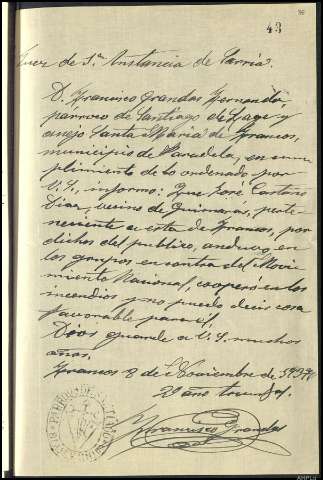 43
Juez de 1ª Instancia de Sarria.
D. Francisco Grandas Fernández,
párroco de Santiago de Lage y
anejo Santa María de Francos,
municipio de Paradela, en cum
plimiento de lo ordenado por
V.S., informo: Que José Castro
Díaz, vecino de Guimaras, perte-
neciente a esta de Francos, por
dichos del público, anduvo en
los grupos en contra del Movi-
miento Nacional, cooperó en los
incendios y no puedo decir cosa
favorable para él.
Dios guarde a V.S. muchos
años.
Francos 8 de Noviembre de 1937
2º año triunfal.
Francisco Grandas